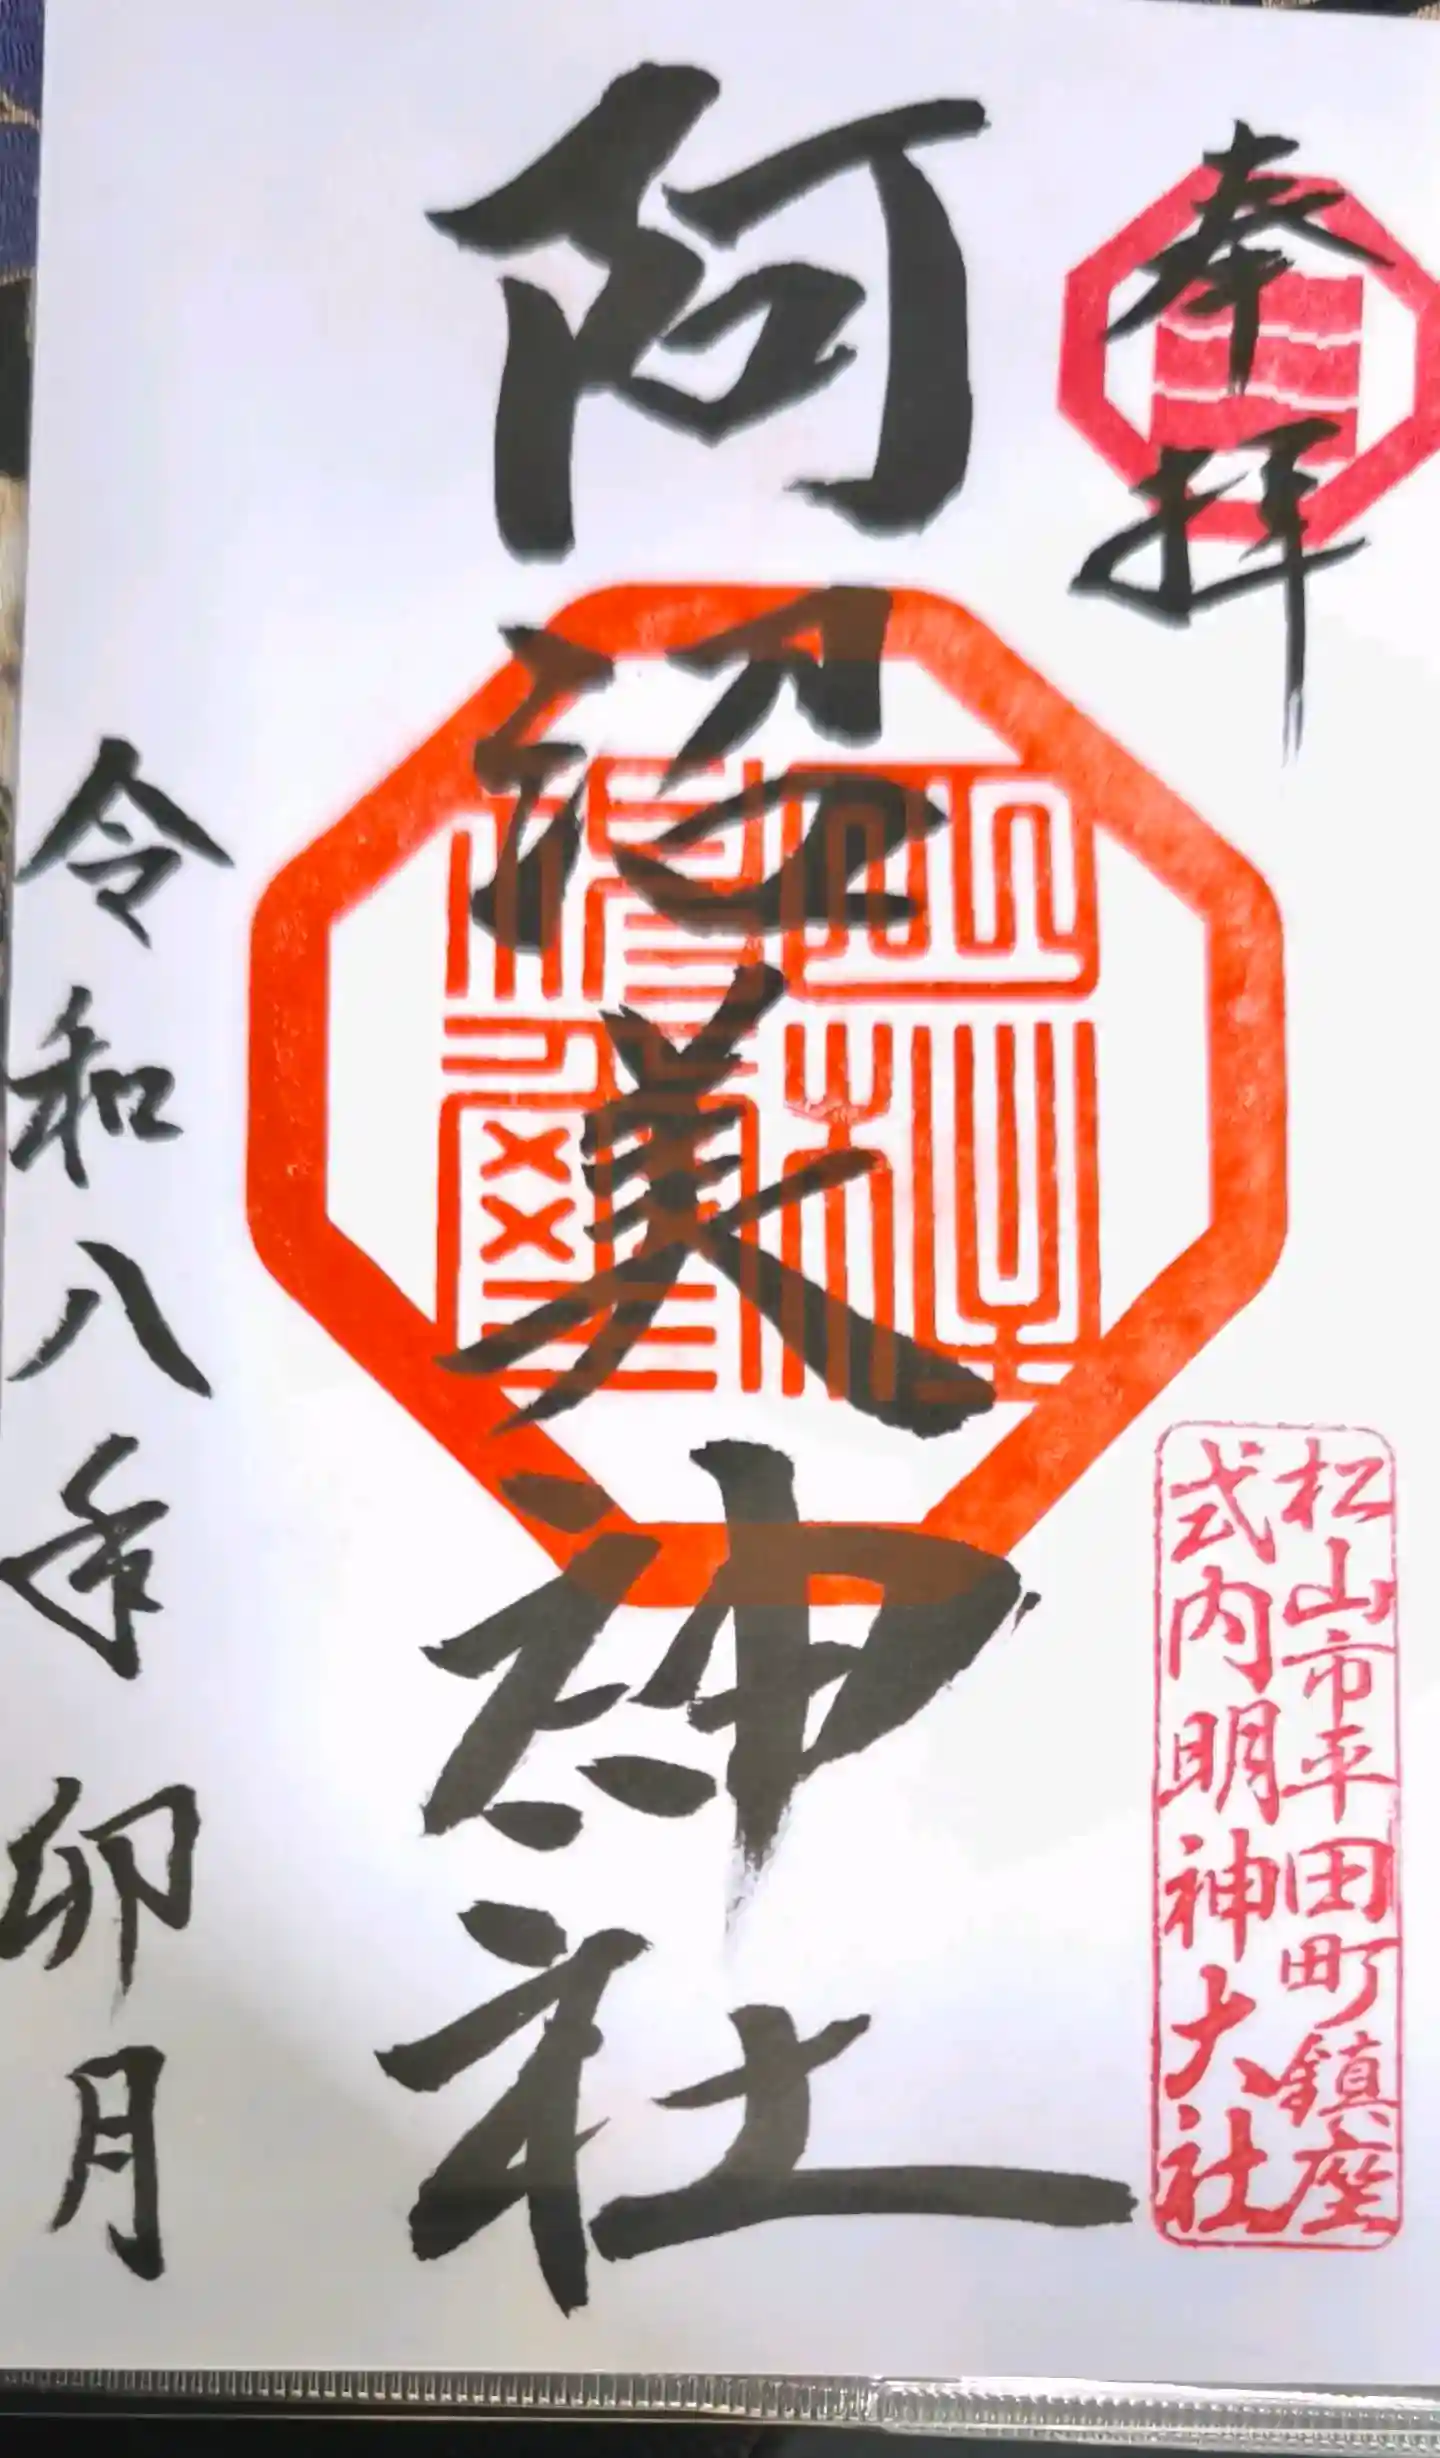 奉拝
松山市平田町鎮座
式内明神大社
阿沼美神社
令和八年 卯月